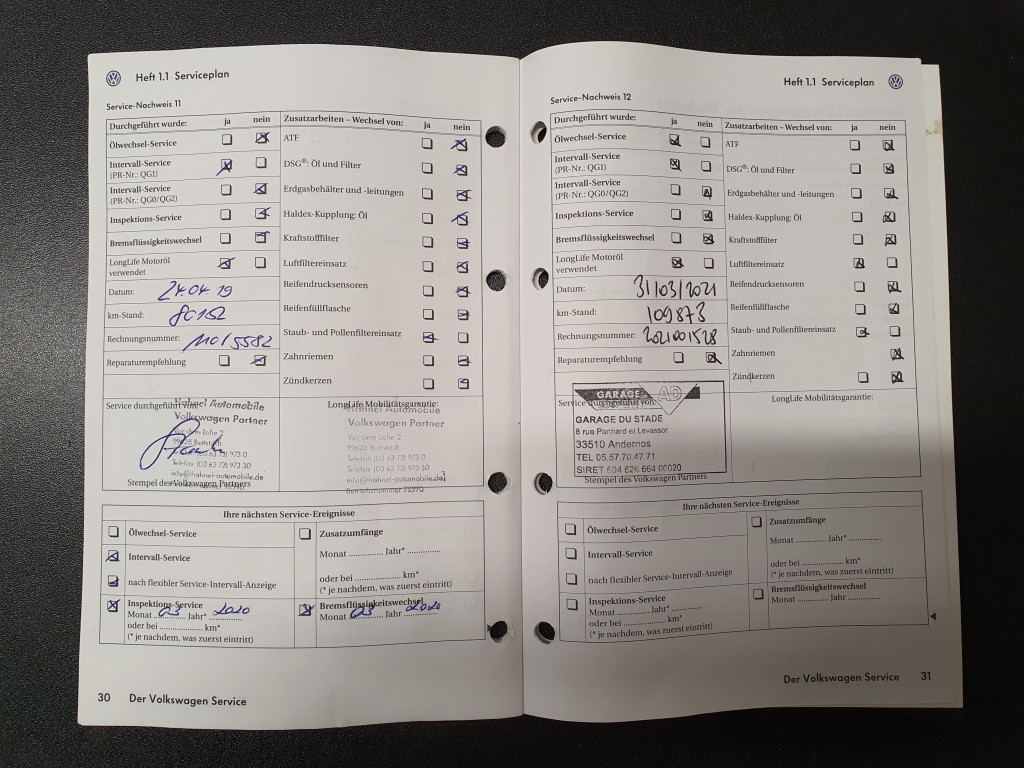 Heft 1.1 Serviceplan
Service-Nachweis 11
Durchgeführt wurde: ja nein
Ölwechsel-Service
Intervall-Service
(PR-Nr.: QG1)
Intervall-Service
(PR-Nr.: QG0/QG2)
Inspektions-Service
Bremsflüssigkeitswechsel
LongLife Motoröl
verwendet
Datum: 24.04.19
km-Stand: 80152
Rechnungsnummer: 11015582
Reparaturempfehlung
Zusatzarbeiten – Wechsel von: ja nein
ATF
DSG®: Öl und Filter
Erdgasbehälter und -leitungen
Haldex-Kupplung: Öl
Kraftstofffilter
Luftfiltereinsatz
Reifendrucksensoren
Reifenfüllflasche
Staub- und Pollenfiltereinsatz
Zahnriemen
Zündkerzen
Service durchgeführt von:
Hahnel Automobile
Volkswagen Partner
Vor dem Lohe 2
99628 Buttstädt
Telefon (03 63 73) 973 0
Telefax (03 63 73) 973 30
info@hahnel-automobile.de
Stempel des Volkswagen Partners
LongLife Mobilitätsgarantie:
Hahnel Automobile
Volkswagen Partner
Vor dem Lohe 2
99628 Buttstädt
Telefon (03 63 73) 973 0
Telefax (03 63 73) 973 30
info@hahnel-automobile.de
Betriebsnummer 75390
Ihre nächsten Service-Ereignisse
Ölwechsel-Service
Intervall-Service
nach flexibler Service-Intervall-Anzeige
Inspektions-Service
Monat 03 Jahr* 2020
oder bei ..................... km*
(* je nachdem, was zuerst eintritt)
Zusatzumfänge
Monat ............... Jahr* ...............
oder bei ..................... km*
(* je nachdem, was zuerst eintritt)
Bremsflüssigkeitswechsel
Monat 03 Jahr 2020
30 Der Volkswagen Service
Heft 1.1 Serviceplan
Service-Nachweis 12
Durchgeführt wurde: ja nein
Ölwechsel-Service
Intervall-Service
(PR-Nr.: QG1)
Intervall-Service
(PR-Nr.: QG0/QG2)
Inspektions-Service
Bremsflüssigkeitswechsel
LongLife Motoröl
verwendet
Datum: 31/03/2021
km-Stand: 109873
Rechnungsnummer: 2021001528
Reparaturempfehlung
Zusatzarbeiten – Wechsel von: ja nein
ATF
DSG®: Öl und Filter
Erdgasbehälter und -leitungen
Haldex-Kupplung: Öl
Kraftstofffilter
Luftfiltereinsatz
Reifendrucksensoren
Reifenfüllflasche
Staub- und Pollenfiltereinsatz
Zahnriemen
Zündkerzen
Service durchgeführt von:
GARAGE AD
GARAGE DU STADE
8 rue Panhard et Levassor
33510 Andernos
TEL 05.57.70.47.71
SIRET 504 626 664 00020
Stempel des Volkswagen Partners
LongLife Mobilitätsgarantie:
Ihre nächsten Service-Ereignisse
Ölwechsel-Service
Intervall-Service
nach flexibler Service-Intervall-Anzeige
Inspektions-Service
Monat ............... Jahr* ...............
oder bei ..................... km*
(* je nachdem, was zuerst eintritt)
Zusatzumfänge
Monat ............... Jahr* ...............
oder bei ..................... km*
(* je nachdem, was zuerst eintritt)
Bremsflüssigkeitswechsel
Monat ............... Jahr ...............
Der Volkswagen Service 31